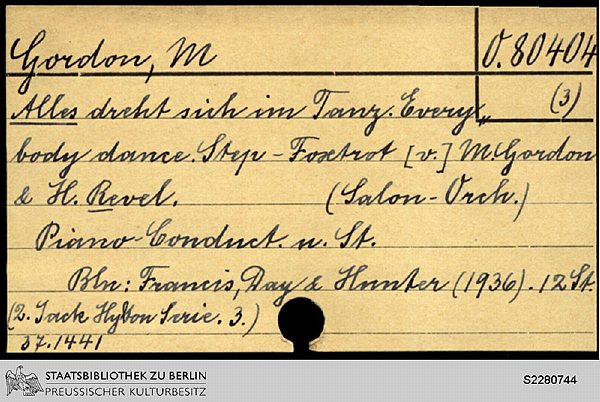 Gordon, M
O.80404
(3)
Alles dreht sich im Tanz. Every„
body dance. Step-Foxtrot [v.] M. Gordon
& H. Revel. (Salon-Orch.)
Piano-Conduct. u. St.
Bln: Francis, Day & Hunter (1936). 12 St.
(2. Jack Hylton Serie. 3.)
37.1441
STAATSBIBLIOTHEK ZU BERLIN
PREUSSISCHER KULTURBESITZ
S2280744